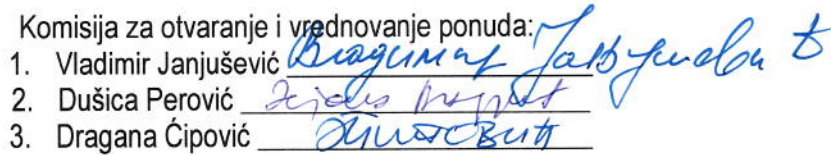 Komisija za otvaranje i vrednovanje ponuda:
1. Vladimir Janjušević Владимир Јањушевић
2. Dušica Perović
3. Dragana Ćipović